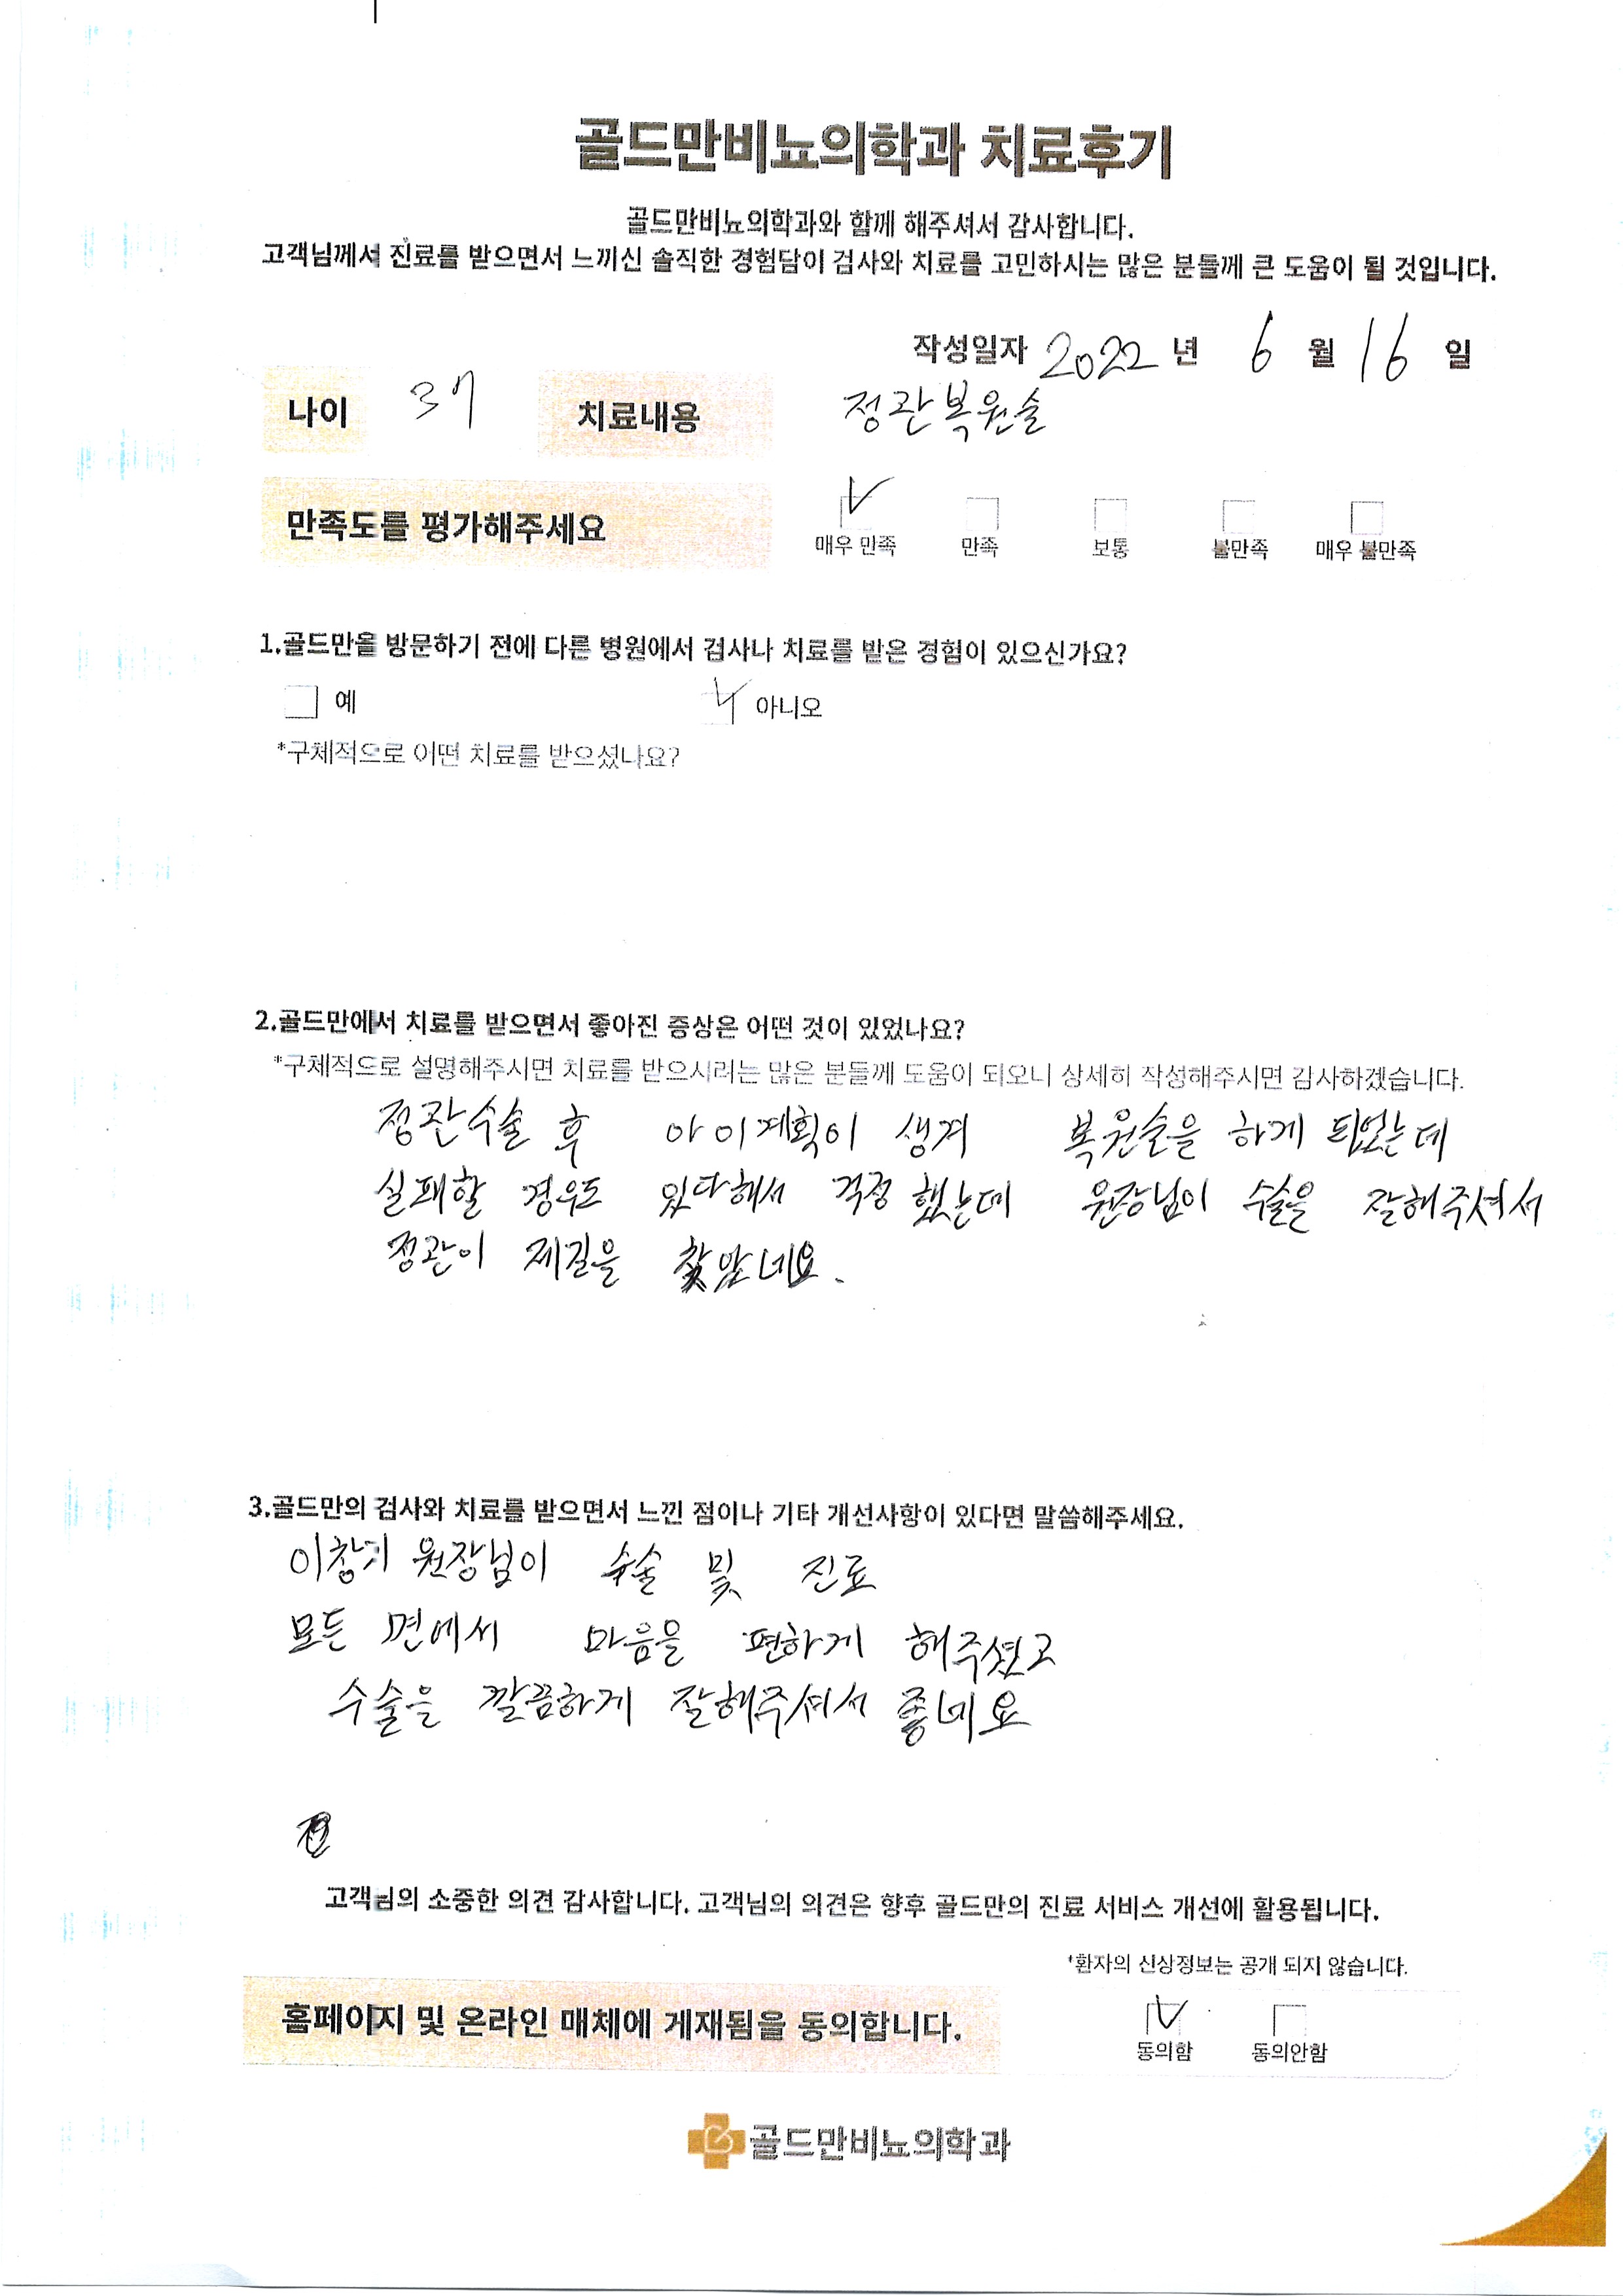 골드만비뇨의학과 치료후기
골드만비뇨의학과와 함께 해주셔서 감사합니다.
고객님께서 진료를 받으면서 느끼신 솔직한 경험담이 검사와 치료를 고민하시는 많은 분들께 큰 도움이 될 것입니다.
작성일자 2022 년 6 월 16 일
나이 37 치료내용 정관복원술
만족도를 평가해주세요
매우 만족 만족 보통 불만족 매우 불만족
1.골드만을 방문하기 전에 다른 병원에서 검사나 치료를 받은 경험이 있으신가요?
예 아니오
*구체적으로 어떤 치료를 받으셨나요?
2.골드만에서 치료를 받으면서 좋아진 증상은 어떤 것이 있었나요?
*구체적으로 설명해주시면 치료를 받으시려는 많은 분들께 도움이 되오니 상세히 작성해주시면 감사하겠습니다.
정관수술 후 아이계획이 생겨 복원술을 하게 되었는데
실패할 경우도 있다해서 걱정했는데 원장님이 수술을 잘해주셔서
정관이 제길을 찾았네요.
3.골드만의 검사와 치료를 받으면서 느낀 점이나 기타 개선사항이 있다면 말씀해주세요.
이창기 원장님이 수술 및 진료
모든 면에서 마음을 편하게 해주셨고
수술을 깔끔하게 잘해주셔서 좋네요
고객님의 소중한 의견 감사합니다. 고객님의 의견은 향후 골드만의 진료 서비스 개선에 활용됩니다.
*환자의 신상정보는 공개 되지 않습니다.
홈페이지 및 온라인 매체에 게재됨을 동의합니다.
동의함 동의안함
골드만비뇨의학과